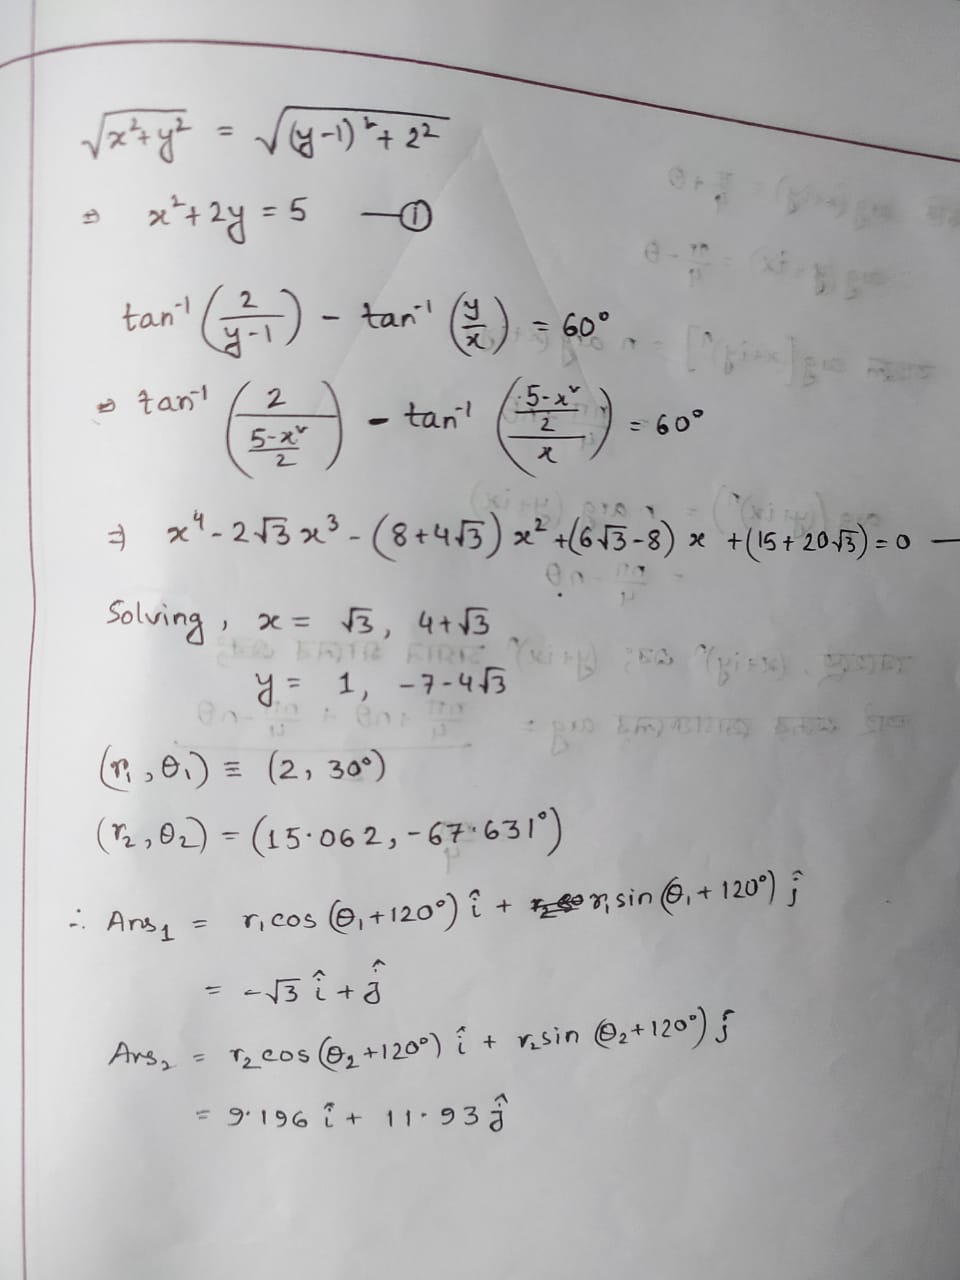 √(x²+y²) = √((y-1)²+2²)
⇒ x²+2y = 5 —①
tan⁻¹(2/(y-1)) - tan⁻¹(y/x) = 60°
⇒ tan⁻¹(2/((5-x²)/2)) - tan⁻¹(((5-x²)/2)/x) = 60°
⇒ x⁴-2√3x³-(8+4√3)x²+(6√3-8)x+(15+20√3)=0 —
Solving, x = √3, 4+√3
y = 1, -7-4√3
(r₁,θ₁) ≡ (2, 30°)
(r₂,θ₂) = (15.062, -67.631°)
∴ Ans₁ = r₁cos(θ₁+120°) î + r₁sin(θ₁+120°) ĵ
= -√3 î + ĵ
Ans₂ = r₂cos(θ₂+120°) î + r₂sin(θ₂+120°) ĵ
= 9.196 î + 11.93 ĵ